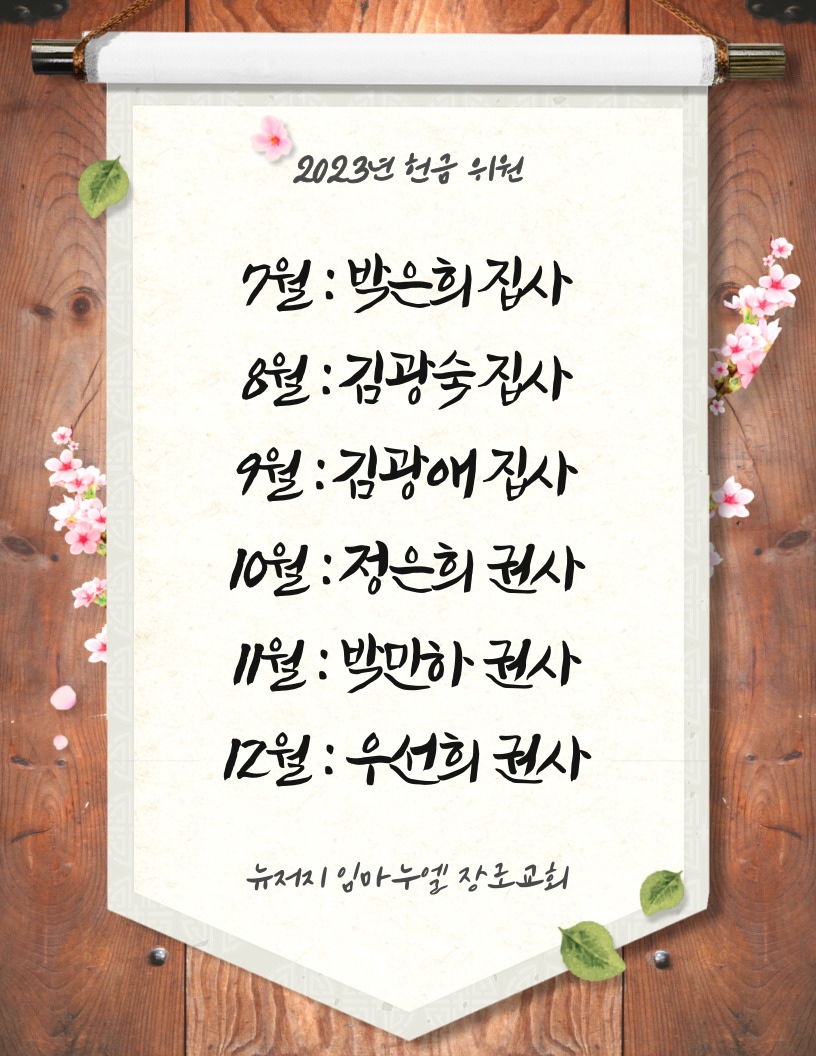 2023년 헌금 위원
7월 : 박은희 집사
8월 : 김광숙 집사
9월 : 김광애 집사
10월 : 정은희 권사
11월 : 박만하 권사
12월 : 우선희 권사
뉴저지 임마누엘 장로교회